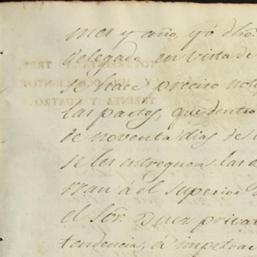 mes y año, yo dho
delegado en vista de
se hace preciso not
las partes, que dentro
de noventa dias de
se les entreguen las
rran a el superior
el Sõr. Juez priva
tendencia, a impetrar